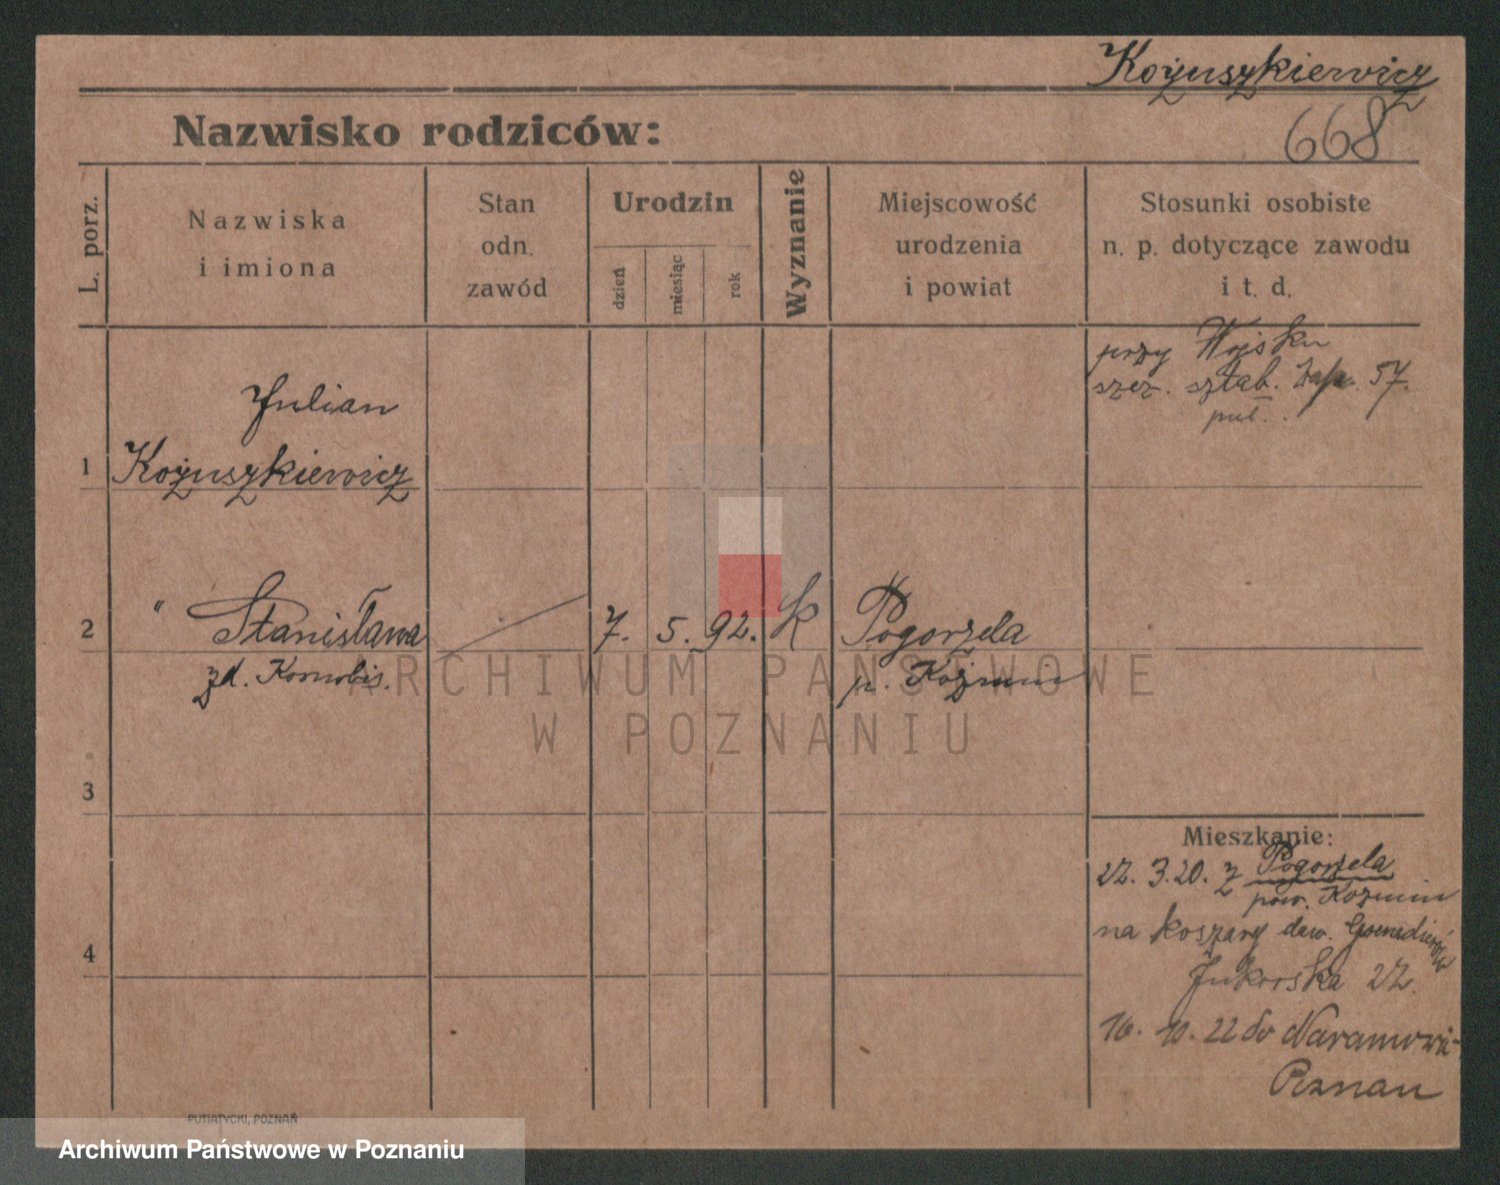 Kożuszkiewicz
668
Nazwisko rodziców:
L. porz.
Nazwiska
i imiona
Stan
odn.
zawód
Urodzin
dzień
miesiąc
rok
Wyznanie
Miejscowość
urodzenia
i powiat
Stosunki osobiste
n. p. dotyczące zawodu
i t. d.
przy Wojsku
szer. sztab. 57.
1
Julian
Kożuszkiewicz
2
" Stanisława
7. 5. 92. k Pogorzela
zd.
p. Koźmin
3
Mieszkanie:
22. 3.20. z Pogorzela
pow. Kozmin
na koszary daw.
22.
4
16. 10. 22 do
Poznan
PUTIATYCKI, POZNAŃ
ARCHIWUM PAŃSTWOWE
W POZNANIU
Archiwum Państwowe w Poznaniu